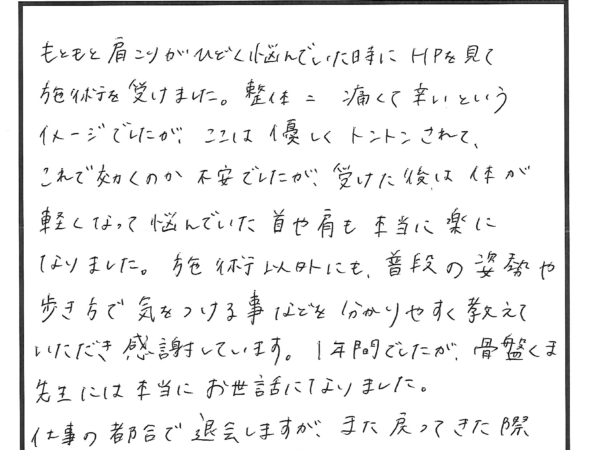 もともと肩こりがひどく悩んでいた時に HPを見て
施術を受けました。整体＝痛くて辛いという
イメージでしたが、ここは優しくトントンされて、
これで効くのか不安でしたが、受けた後は体が
軽くなって悩んでいた首や肩も本当に楽に
なりました。施術以外にも、普段の姿勢や
歩き方で気をつける事などを分かりやすく教えて
いただき感謝しています。1年間でしたが、骨盤くま
先生には本当にお世話になりました。
仕事の都合で退会しますが、また戻ってきた際